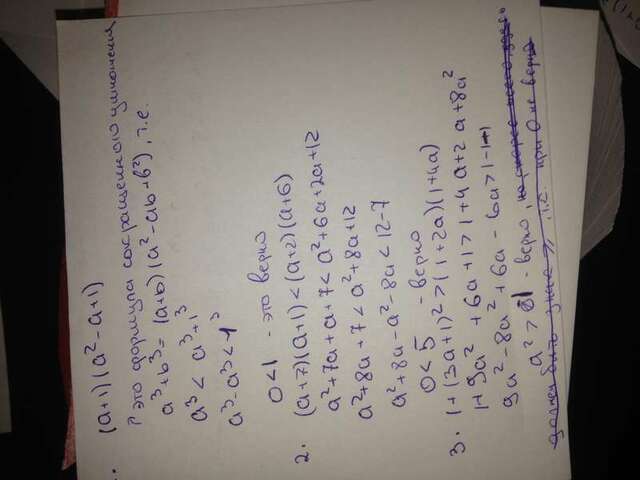 . (a+1)(a²-a+1)
это формула сокращенного умножения
a³+b³=(a+b)(a²-ab+b²), т.е.
a³<a³+1³
a³-a³<1³
0<1 - это верно
2. (a+7)(a+1)<(a+2)(a+6)
a²+7a+a+7<a²+6a+2a+12
a²+8a+7<a²+8a+12
a²+8a-a²-8a<12-7
0<5 - верно
3. 1+(3a+1)²>(1+2a)(1+4a)
1+9a²+6a+1>1+4a+2a+8a²
9a²-8a²+6a-6a>1-1-1
a²>-1 - верно,
должен быть знак ≥, т.к. при 0 не верно